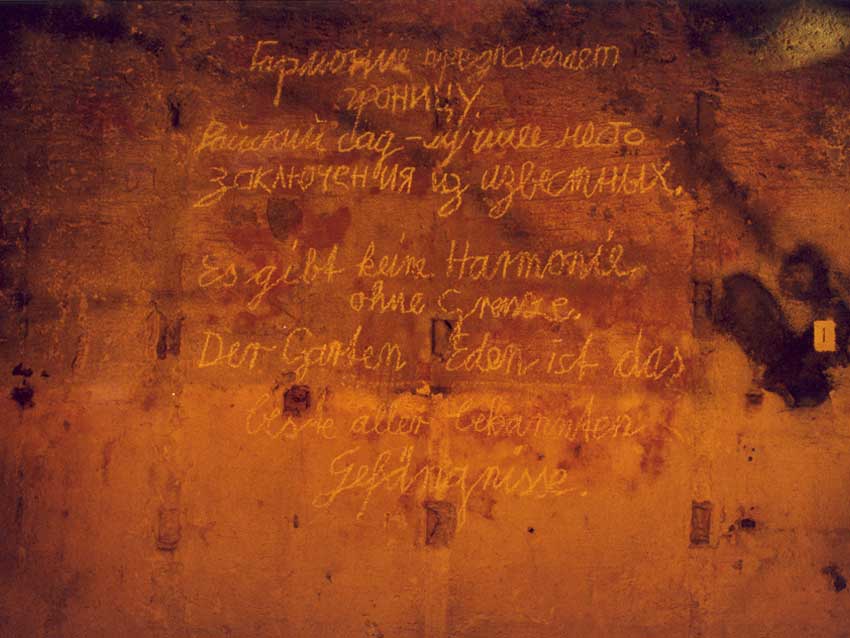 Гармония предполагает
границу.
Райский сад - лучшее место
заключения из известных.
Es gibt keine Harmonie
ohne Grenze.
Der Garten Eden ist das
beste aller bekannten
Gefängnisse.